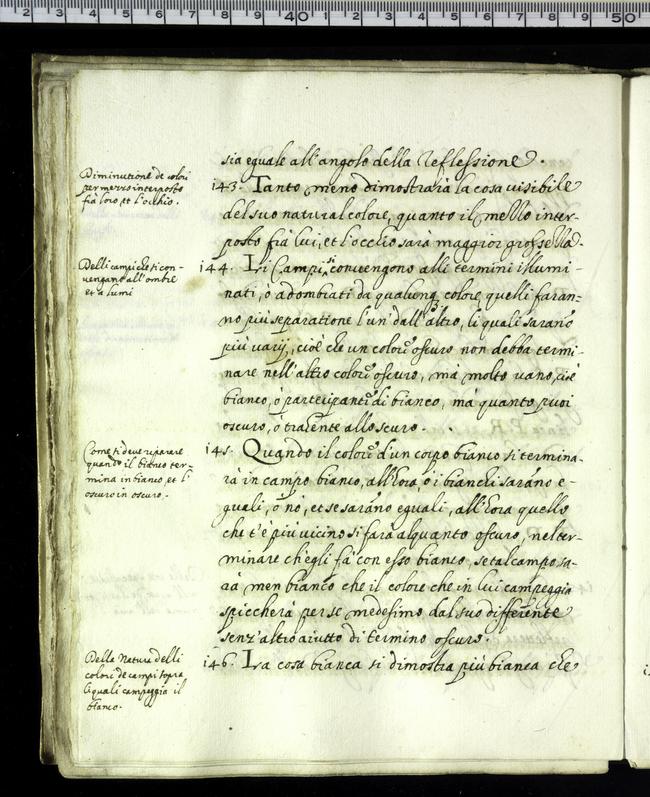 sia eguale all'angolo della reflessione.
Diminutione de colori
per mezzo interposto
frà loro, et l'occhio.
143. Tanto meno dimostrarà la cosa visibile
del suo natural colore, quanto il mezzo inter-
posto frà lui, et l'occhio sarà maggior grossezza.
Delli campi che si con-
vengano all'ombre
et a lumi
144. Li Campi, si convengono alli termini illumi-
nati, ò adombrati da qualunq colore quelli faran-
no più separatione l'un' dall'altro, li quali sarano
più varij, cioè che un colore oscuro non debba termi-
nare nell'altro colore oscuro, mà molto vario, cioè
bianco, ò participante di bianco, mà quanto puoi
oscuro, ò traente allo scuro.
Come si deve riparare
quando il bianco ter-
mina in bianco, et l'
oscuro in oscuro.
145. Quando il colore d'un corpo bianco si termina-
rà in campo bianco, all'hora, ò i bianchi sarano e-
guali, ò nò, et se sarano eguali, all'hora quello
che t'è più vicino si farà alquanto oscuro, nel ter-
minare ch'egli fà con esso bianco, se tal campo sa-
rà men bianco che il colore che in lui campeggia
spiccherà per se medesimo dal suo differente
senz'altro aiutto di termino oscuro.
Della Natura delli
colori de campi sopra
li quali campeggia il
bianco.
146. La cosa bianca si dimostra più bianca che